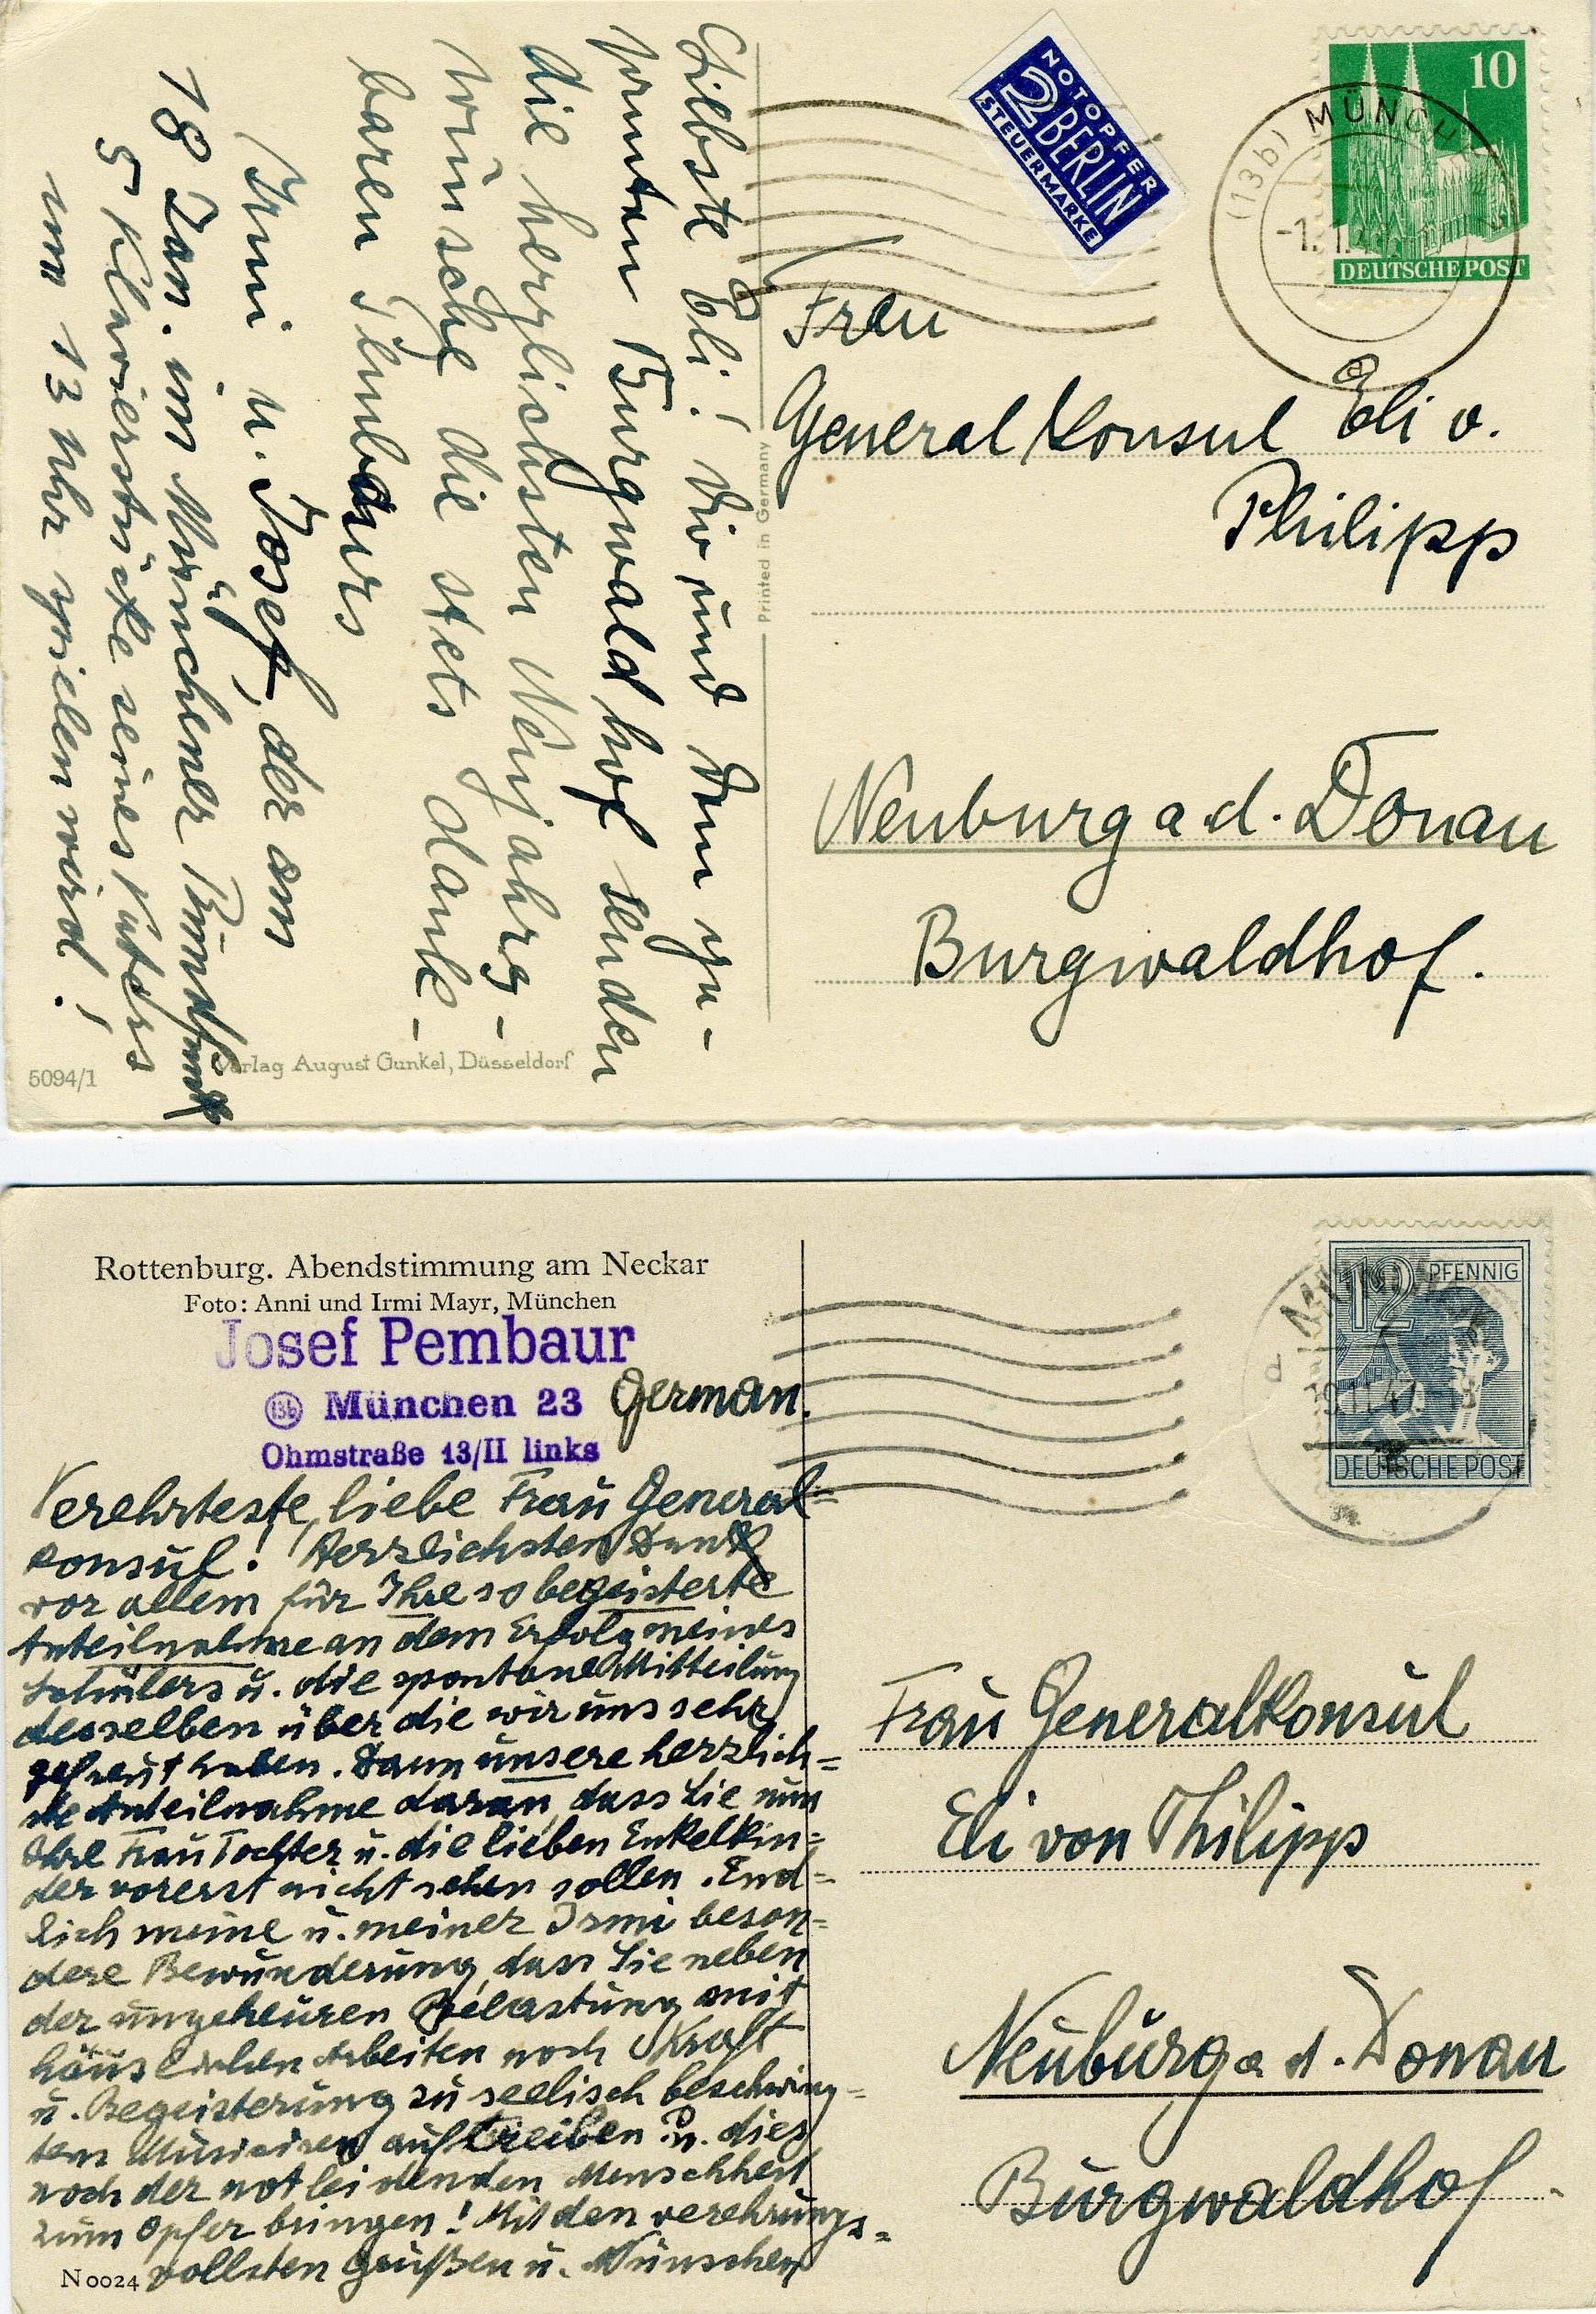 Liebste Eli! Dir und dem ge-
samten Burgwaldhof senden
die herzlichsten Neujahrs-
wünsche die stets dank-
baren Pembaurs
Irmi u. Josef, der am
18 Jan. im Münchener Rundfunk
5 Klavierstücke seines Vaters
um 13 Uhr spielen wird!
5094/1
Verlag August Gunkel, Düsseldorf
Printed in Germany
NOTOPFER
2 BERLIN
STEUERMARKE
10
DEUTSCHE POST
(13b) MÜNCHEN
a
Frau
General Konsul Eli v.
Philipp
Neuburg a d. Donau
Burgwaldhof.
Rottenburg. Abendstimmung am Neckar
Foto: Anni und Irmi Mayr, München
Josef Pembaur
13b München 23 German.
Ohmstraße 13/II links
Verehrteste, liebe Frau General=
konsul! Herzlichsten Dank
vor allem für Ihre so begeisterte
Anteilnahme an dem Erfolg meines
Schülers u. die spontane Mitteilung
desselben über die wir uns sehr
gefreut haben. Dann unsere herzlich=
ste Anteilnahme daran, dass Sie nun
Ihre Frau Tochter u. die lieben Enkelkin=
der vorerst nicht sehen sollen. End=
lich meine u. meiner Irmi beson=
dere Bewunderung, dass Sie neben
der ungeheuren Belastung mit
häuslichen Arbeiten noch Kraft
u. Begeisterung zu seelisch beschwing=
tem Musizieren auftreiben u. dies
noch der notleidenden Menschheit
zum Opfer bringen! Mit den verehrungs=
vollsten Grüßen u. Wünschen
N 0024
12 PFENNIG
DEUTSCHE POST
Frau Generalkonsul
Eli von Philipp
Neuburg a d. Donau
Burgwaldhof.